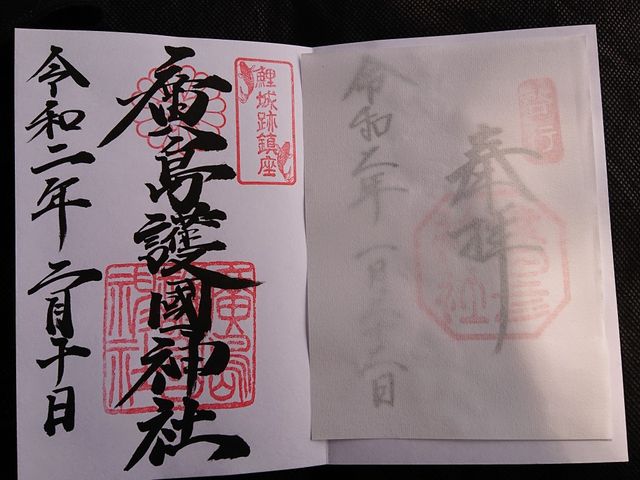 奉拝
令和二年一月
日
鯉城跡鎮座
廣島護國神社
廣島護國神社
令和二年二月十日